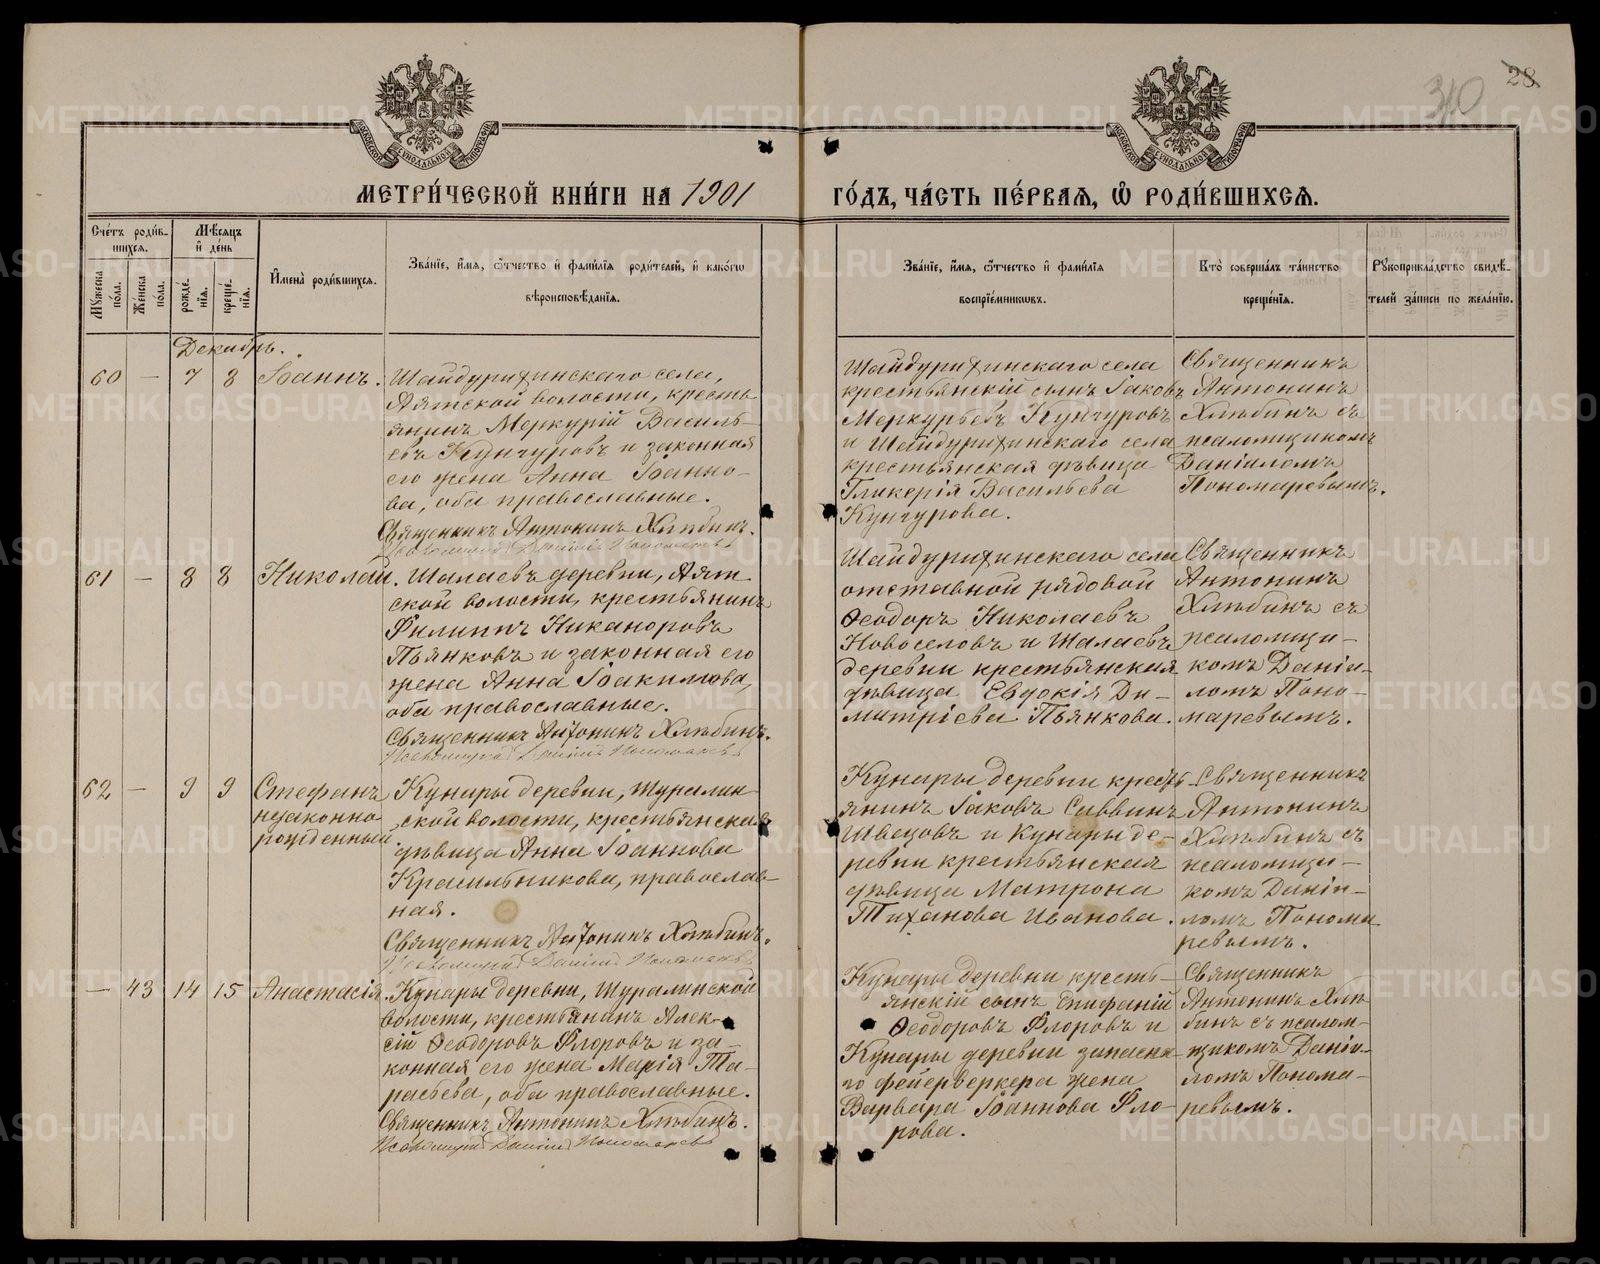 28
340
МОСКОВСКОЙ СѴНОДАЛЬНОЙ ТИПОГРАФІИ
МОСКОВСКОЙ СѴНОДАЛЬНОЙ ТИПОГРАФІИ
МЕТРИ́ЧЕСКОЙ КНИ́ГИ НА 1901
ГО́ДЪ, ЧА́СТЬ ПЕ́РВАѦ, Ѡ҆ РОДИ́ВШИХСѦ.
Сче́тъ роди́в-
шихсѧ.
Мꙋ́жеска по́ла.
Же́нска по́ла.
Мѣ́сѧцъ
и҆ де́нь
рожде́-
нїѧ.
креще́-
нїѧ.
И҆мена̀ роди́вшихсѧ.
Зва́нїе, и҆́мѧ, ѻ҆́тчество и҆ фами́лїѧ роди́телей, и҆ како́гѡ
вѣроисповѣ́данїѧ.
Зва́нїе, и҆́мѧ, ѻ҆́тчество и҆ фами́лїѧ
воспрїе́мникѡвъ.
Кто̀ соверша́лъ та́инство
креще́нїѧ.
Рꙋкоприкла́дство свидѣ́-
телей за́писи по жела́нїю.
Декабрь.
60 — 7 8 Іоаннъ.
Шайдурихинскаго села,
Аятской волости, кресть-
янинъ Меркурій Василь-
евъ Кунгуровъ и законная
его жена Анна Іоанно-
ва, оба православные.
Священникъ Антонинъ Хлѣбинъ.
Псаломщикъ Даніилъ Пономаревъ
Шайдурихинскаго села
крестьянскій сынъ Іаковъ
Меркурьевъ Кунгуровъ
и Шайдурихинскаго села
крестьянская дѣвица
Гликерія Васильева
Кунгурова.
Священникъ
Антонинъ
Хлѣбинъ съ
псаломщикомъ
Даніиломъ
Пономаревымъ.
61 — 8 8 Николай.
Шалаевъ деревни, Аят-
ской волости, крестьянинъ
Филиппъ Никаноровъ
Пьянковъ и законная его
жена Анна Іоакимова,
оба православные.
Священникъ Антонинъ Хлѣбинъ.
Псаломщикъ Даніилъ Пономаревъ
Шайдурихинскаго села
отставной рядовой
Ѳеодоръ Николаевъ
Новоселовъ и Шалаевъ
деревни крестьянская
дѣвица Евдокія Ди-
митріева Пьянкова.
Священникъ
Антонинъ
Хлѣбинъ съ
псаломщи-
комъ Даніи-
ломъ Поно-
маревымъ.
62 — 9 9 Стефанъ
незаконно
рожденный
Кунары деревни, Шуралин-
ской волости, крестьянская
дѣвица Анна Іоаннова
Красильникова, православ-
ная.
Священникъ Антонинъ Хлѣбинъ.
Псаломщикъ Даніилъ Пономаревъ
Кунары деревни кресть-
янинъ Іаковъ Саввинъ
Швецовъ и Кунары де-
ревни крестьянская
дѣвица Матрона
Тиханова Иванова.
Священникъ
Антонинъ
Хлѣбинъ съ
псаломщи-
комъ Даніи-
ломъ Понома-
ревымъ.
— 43 14 15 Анастасія.
Кунары деревни, Шуралинской
волости, крестьянинъ Алек-
сій Ѳеодоровъ Флоровъ и за-
конная его жена Марія Та-
расьева, оба православные.
Священникъ Антонинъ Хлѣбинъ.
Псаломщикъ Даніилъ Пономаревъ
Кунары деревни кресть-
янскій сынъ Епифаній
Ѳеодоровъ Флоровъ и
Кунары деревни запасна-
го фейерверкера жена
Варвара Іоаннова Фло-
рова.
Священникъ
Антонинъ Хлѣ-
бинъ съ псалом-
щикомъ Даніи-
ломъ Понома-
ревымъ.
METRIKI.GASO-URAL.RU